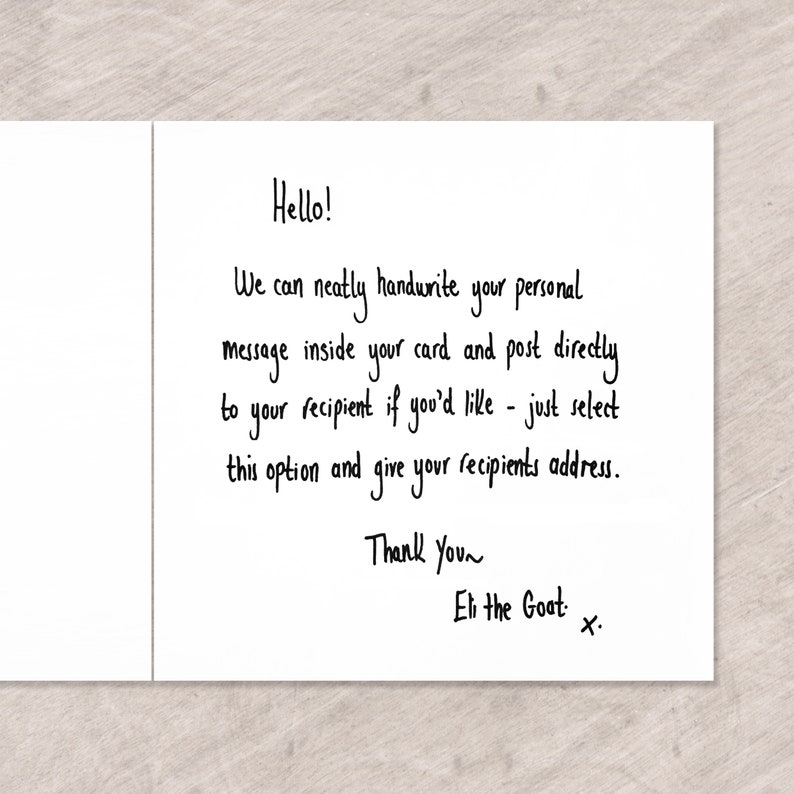 Hello!
We can neatly handwrite your personal
message inside your card and post directly
to your recipient if you'd like - just select
this option and give your recipients address.
Thank You~
Eli the Goat.
x.